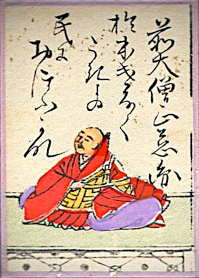 前大僧正慈円
おほけなく
うき世の
民に
おほふかな